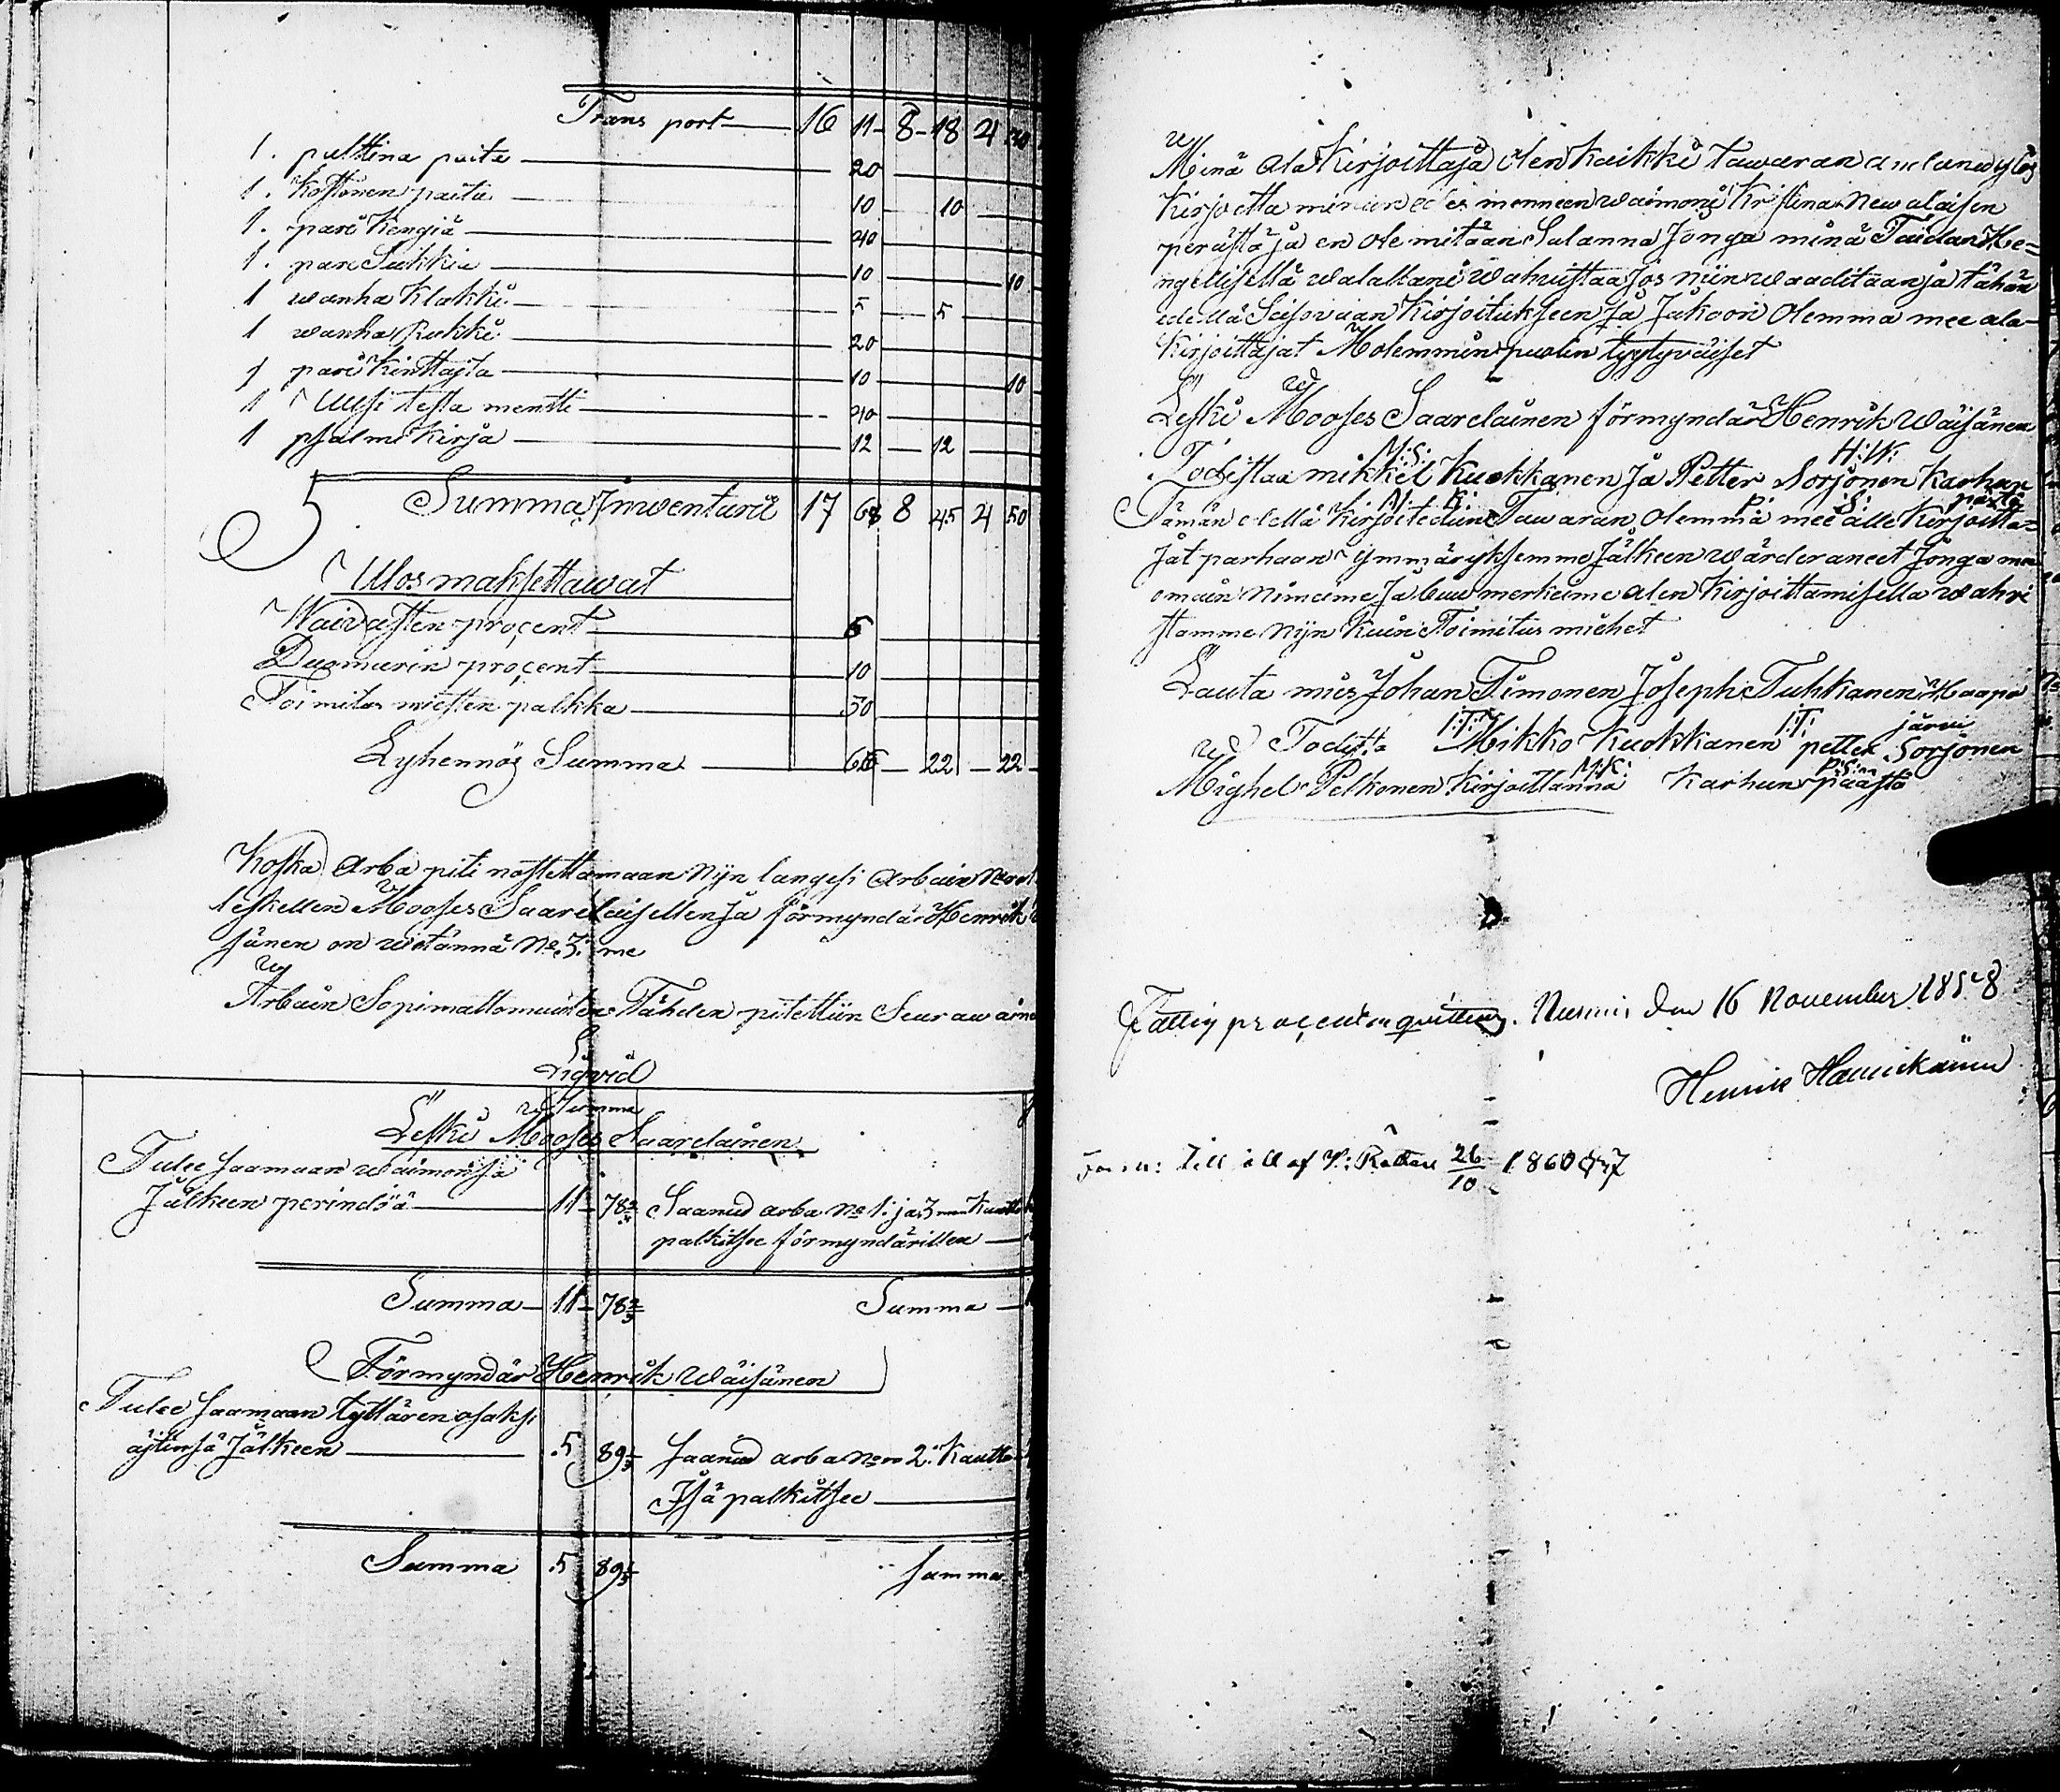 Trans port 16 11 8 18 4
1. pulttina paita 20
1. Kottonen paita 10 10
1. pari Kengiä 40
1. pari Sukkia 10 10
1 wanha Klakki 5 5
1 wanha Rukki 20
1 pari Kinttaita 10 10
1 Uusi testa mentti 40
1 psalmi Kirja 12 12
Summa Inwentarie 17 68 8 45 4 50
Ulos maksettawat
Waivasten proçent 6
Duomarin proçent 10
Toimitus miesten palkka 50
Lyhennös Summa 66 22 22
Koska Arba piti nostettamaan Nijn langesi Arbain
leskellen Mooses Saarelaisellen ja förmyndär Henrik
sänen on wetännä No 3: me
Arbain Sopimattomuuten Tähden pitettiin Seurawainen
Liqvid
Summa
Leski Mooses Saarelainen
Tulee saamaan waimonsa
Jälkeen perindöä 11 78⅔ Saanud arba No 1: ja 3
palkitsee förmyndärillen
Summa 11 78⅔ Summa
Förmyndär Henrik Wäisänen
Tulee saamaan tyttären osaksi
äjtinsä Jälkeen 5 89⅓ saanud arba 2: Kautta
Isä palkitsee
Summa 5 89⅓ summa
Minä ala Kirjoittaja olen Kaikki tawaran andanu ylös
Kirjoitta minun edes menneen waimoni Kristina Newalaisen
perästä ja en ole mitään Salanna Jonga minä Taidan He=
ngellisellä walallani wahwistaa Jos niin waaditaan ja tähän
edellä Seisovaan Kirjoitukseen Ja Jakoon Olemma mee ala
Kirjoittajat Molemmin puolin tyytyväiset
Leski Mooses Saarelainen förmyndär Henrik Wäisänen
M:S: H:W:
Todistaa mikkel Kuokkanen Ja Petter Sorjonen Karhun
M: K: P: S: pästä
Tämän edellä Kirjoitedun Tawaran Olemma mee alle Kirjoitta=
Jat parhaan Ymmäryksemme Jälkeen wärderaneet Jonga me
omain Nimeime Ja buu merkeime alen Kirjoittamisella wahwi
stamme Nijn Kuin Toimitus miehet
Lauta mies Johan Timonen Joseph Tuhkanen Haapa
I:T: I:T: järvi
Todista Mikko Kuokkanen petter Sorjonen
M:K: P:S:
Mighel Pelkonen Kirjoittanna Karhun päästä
Fattig proçenten quitteras. Nurmis den 16 November 1858
Henrik
till af 26/10 1860 § 7